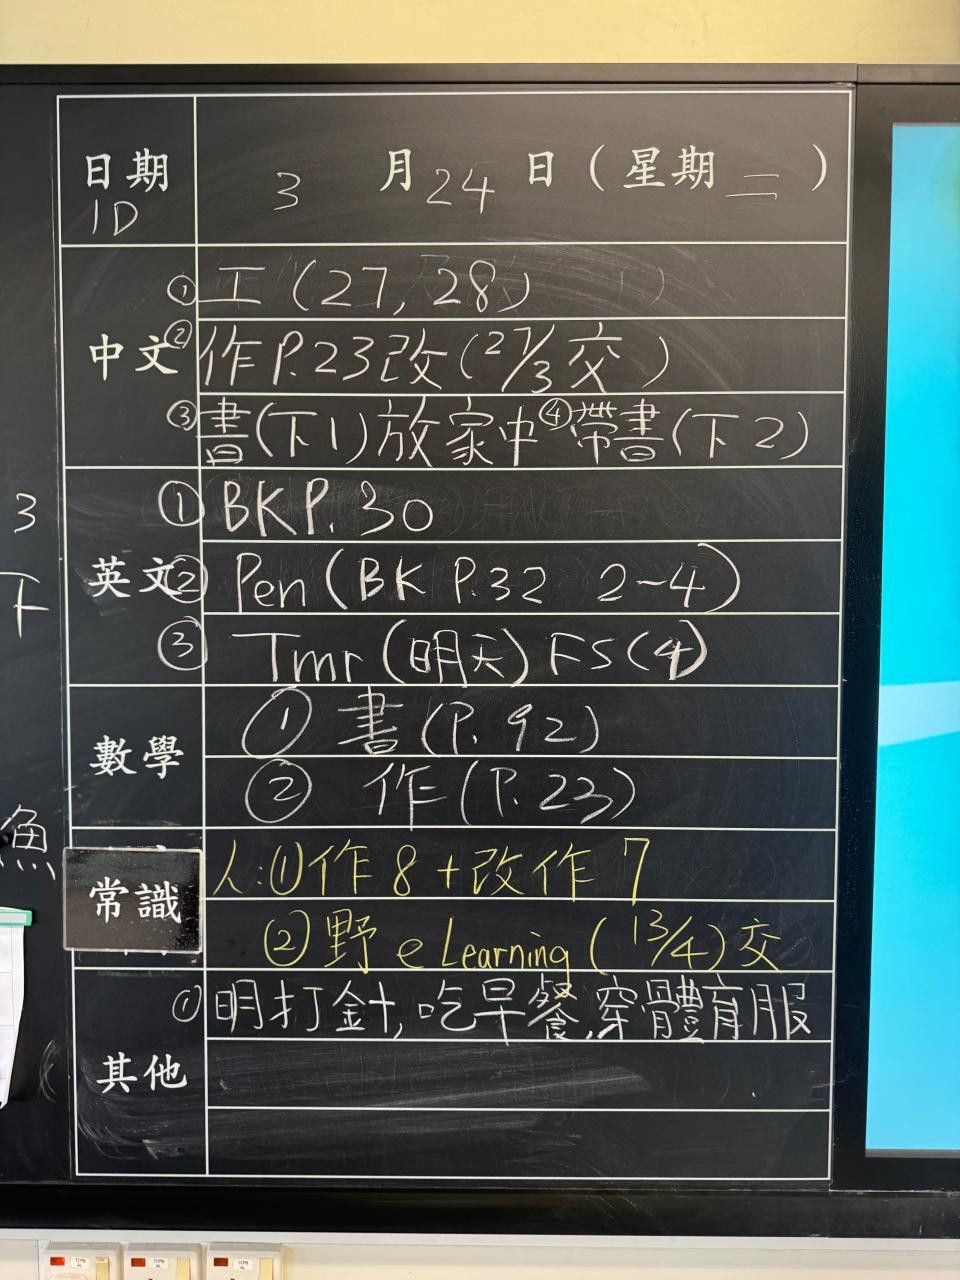 日期 3月24日(星期二)
1D
①工(27, 28)
中文
②作P.23改(27/3交)
③書(下1)放家中④帶書(下2)
①BKP.30
英文
②Pen(BK P.32 2~4)
③Tmr(明天)FS(4)
數學
①書(P.92)
②作(P.23)
常識
人:①作8+改作7
②野eLearning(13/4)交
①明打針,吃早餐,穿體育服
其他
3
下
魚